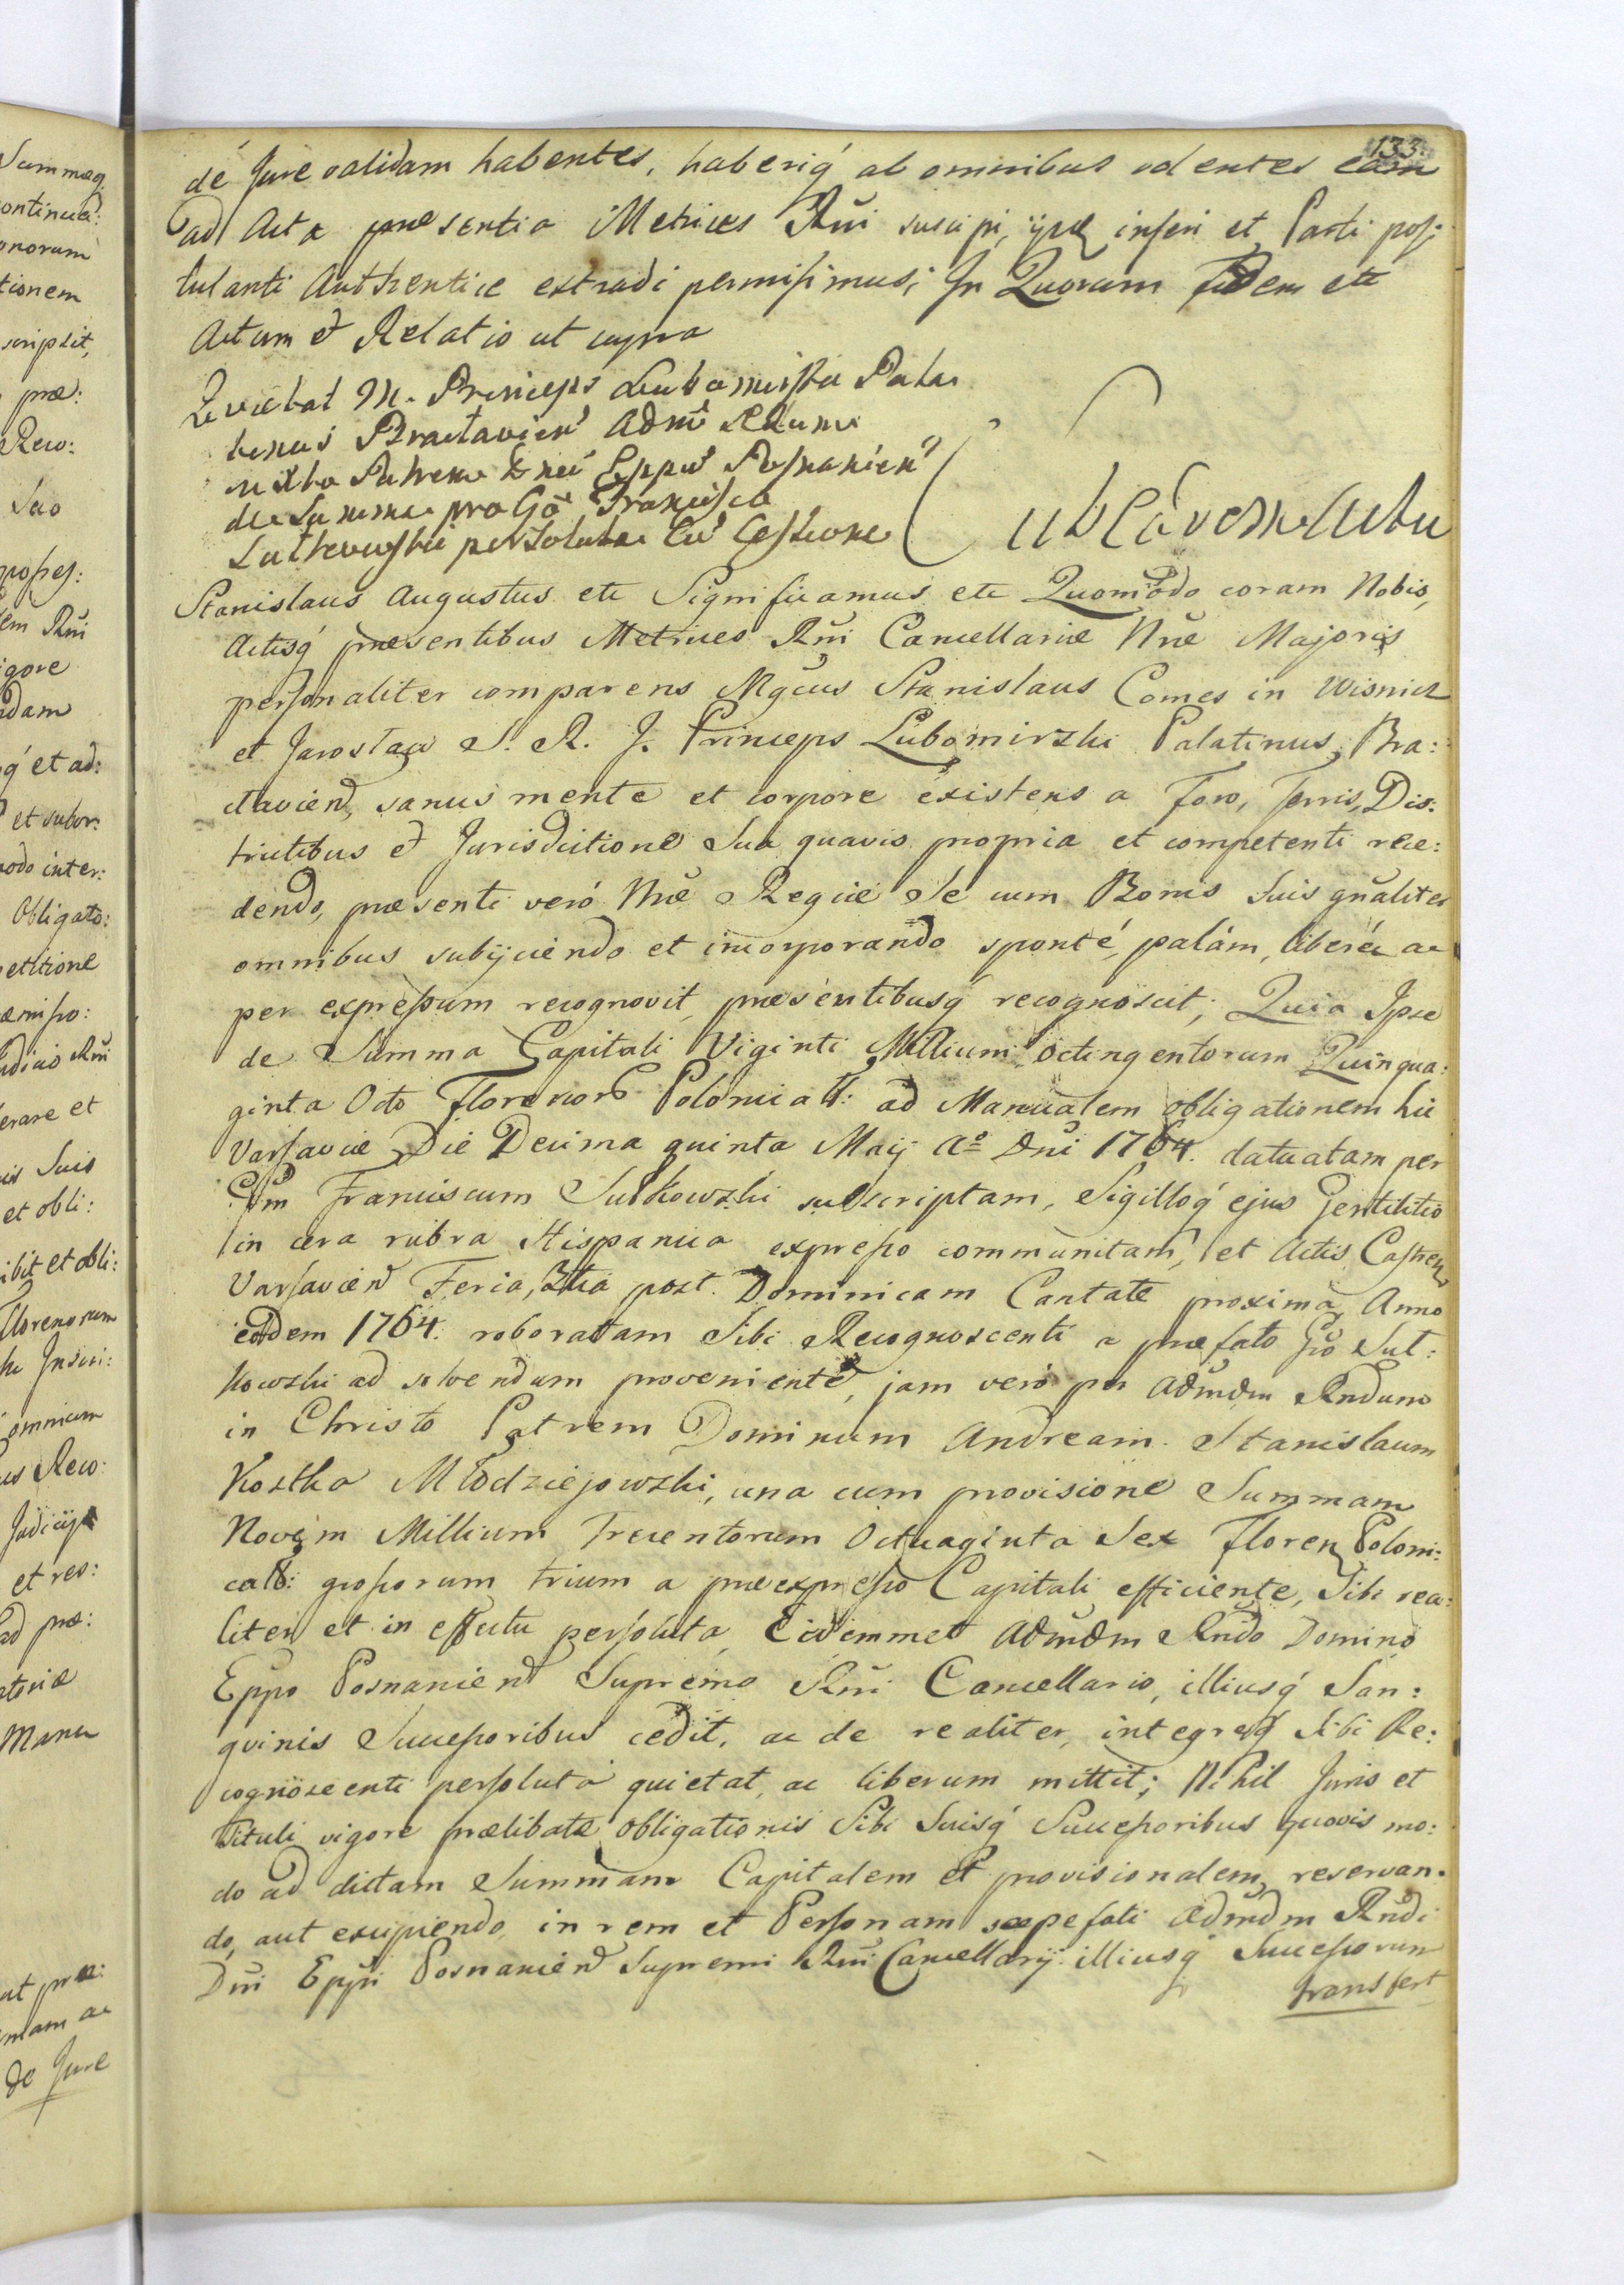 133.
dé Jure validam habentes, haberiq́ ab omnibus volentes eam
ad Acta præsentia Metrices Rñi suscipi, ijsq inseri et Parti pos:
tulanti Authentice extradi permisimus; In Quorum Fidem etc
Actum et Relatio ut supra
Quietat M. Princeps Lubomirski Pala
tinus Bractavień Admŕ RRdum
in Xto Patrem Dnū Eppū Posnanień
de Summa pro Gō Francisco
Sutkowski persoluta Cū Cessione
Stanislaus Augustus etc Significamus etc Quomodo coram Nobis,
Actisq́ præsentibus Metrices Rñi Cancellariæ Nrǣ Majoris
personaliter comparens Mgcus Stanislaus Comes in Wisnicz
et Jarosław S. R. J. Princeps Lubomirzki Palatinus Bra:
clavień, sanus mente et corpore existens a Foro, Terris, Dis:
trictibus et Jurisdictione Sua quavis propria et competenti rece:
dendo, præsenti veró Nrǣ Regiæ Se cum Bonis Suis gnāliter
omnibus subijciendo et incorporando sponté, palám, liberé ac
per expressum recognovit, præsentibusq́ recognoscit; Quia Ipse
de Summa Capitali Viginti Millium Octingentorum Quinqua:
ginta Octo Florenor Polonical: ad Manualem obligationem hic
Varsaviæ Die Decima quinta Maij Aº Dni 1764. datuatam per
Gm̃ Franciscum Sutkowzki subscriptam, Sigilloq́ ejus Gentilitio
in cera rubra Hispanica expresso communitam, et Actis Castren
Varsavień Feria, 3tia post Dominicam Cantate proxima, Anno
eodem 1764. roboratam Sibi Recognoscenti a præfato Gō Sut:
kowzki ad solvendum proveniente, jam veró per Admdm Rndum
in Christo Patrem Dominum Andream Stanislaum
Kostka Młodziejowzki, una cum provisione Summam
Novem Millium Trecentorum Octuaginta Sex Floren Poloni:
cal: grossorum trium a præexpresso Capitali efficiente, Sibi rea:
liter et in effectu persoluta, Eidemmet Admdm Rndo Domino
Eppo Posnanień Supremo Rñi Cancellario, illiusq́ San:
gvinis Successoribus cedit, ac de realiter, integreq́ Sibi Re:
cognoscenti persoluta quietat, ac liberum mittit; Nihil Juris et
Tituli vigore prælibatæ obligationis Sibi Suisq́ Successoribus quovis mo:
do ad dictam Summam Capitalem et provisionalem reservan:
do, aut excipiendo, in rem et Personam sæpefati Admdm Rndi
Dñi Eppi Posnanień Supremi Rñi Cancellarij illiusq́ Successorum
transfert